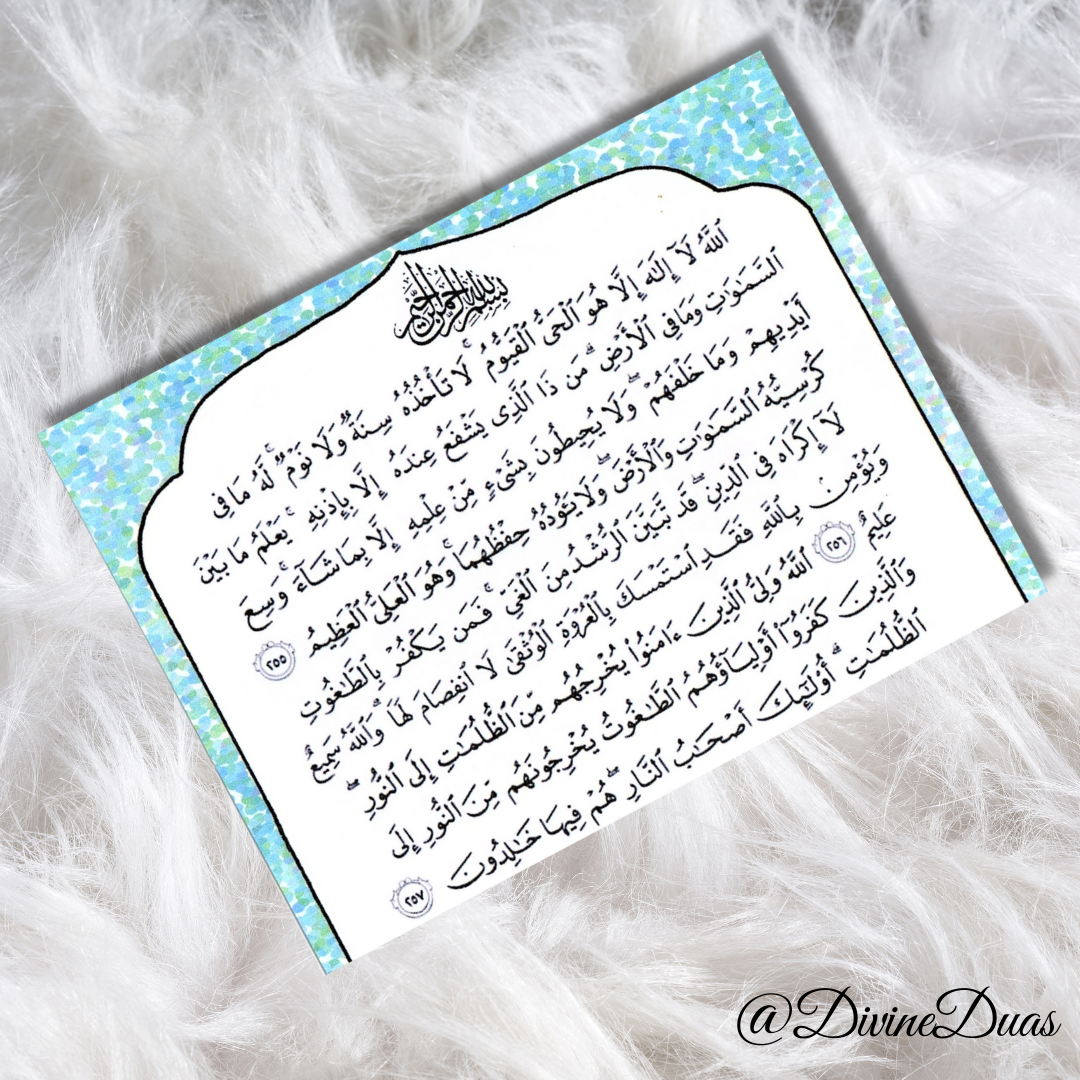 بِسْمِ ٱللَّهِ ٱلرَّحْمَٰنِ ٱلرَّحِيمِ
ٱللَّهُ لَآ إِلَٰهَ إِلَّا هُوَ ٱلْحَىُّ ٱلْقَيُّومُ ۚ لَا تَأْخُذُهُۥ سِنَةٌ وَلَا نَوْمٌ ۚ لَّهُۥ مَا فِى
ٱلسَّمَٰوَٰتِ وَمَا فِى ٱلْأَرْضِ ۗ مَن ذَا ٱلَّذِى يَشْفَعُ عِندَهُۥٓ إِلَّا بِإِذْنِهِۦ ۚ يَعْلَمُ مَا بَيْنَ
أَيْدِيهِمْ وَمَا خَلْفَهُمْ ۖ وَلَا يُحِيطُونَ بِشَىْءٍ مِّنْ عِلْمِهِۦٓ إِلَّا بِمَا شَآءَ ۚ وَسِعَ
كُرْسِيُّهُ ٱلسَّمَٰوَٰتِ وَٱلْأَرْضَ ۖ وَلَا يَـُٔودُهُۥ حِفْظُهُمَا ۚ وَهُوَ ٱلْعَلِىُّ ٱلْعَظِيمُ ٢٥٥
لَآ إِكْرَاهَ فِى ٱلدِّينِ ۖ قَد تَّبَيَّنَ ٱلرُّشْدُ مِنَ ٱلْغَىِّ ۚ فَمَن يَكْفُرْ بِٱلطَّٰغُوتِ
وَيُؤْمِنۢ بِٱللَّهِ فَقَدِ ٱسْتَمْسَكَ بِٱلْعُرْوَةِ ٱلْوُثْقَىٰ لَا ٱنفِصَامَ لَهَا ۗ وَٱللَّهُ سَمِيعٌ
عَلِيمٌ ٢٥٦ ٱللَّهُ وَلِىُّ ٱلَّذِينَ ءَامَنُوا۟ يُخْرِجُهُم مِّنَ ٱلظُّلُمَٰتِ إِلَى ٱلنُّورِ ۖ
وَٱلَّذِينَ كَفَرُوٓا۟ أَوْلِيَآؤُهُمُ ٱلطَّٰغُوتُ يُخْرِجُونَهُم مِّنَ ٱلنُّورِ إِلَى
ٱلظُّلُمَٰتِ ۗ أُو۟لَٰٓئِكَ أَصْحَٰبُ ٱلنَّارِ ۖ هُمْ فِيهَا خَٰلِدُونَ ٢٥٧
@DivineDuas